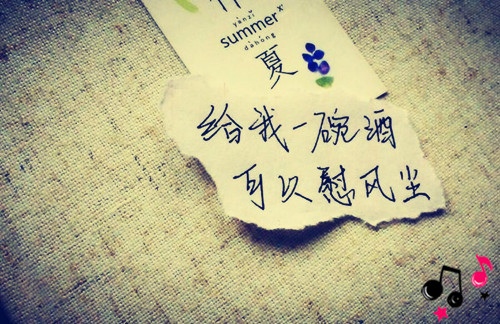 yànzi
summer
dàhóng
夏
给我一碗酒
可以慰风尘